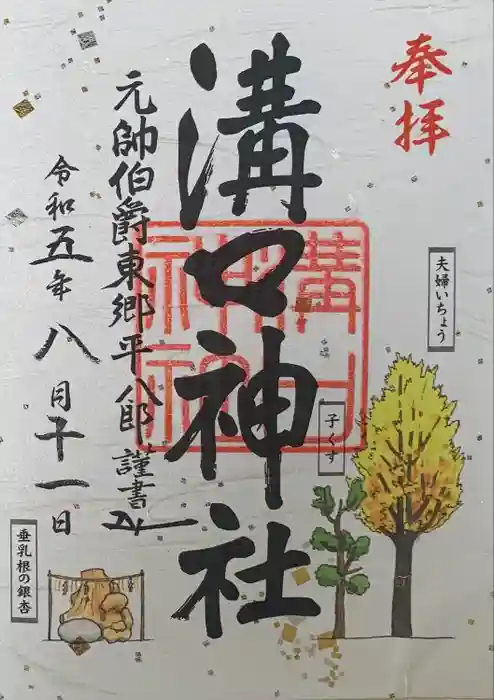 奉拝
夫婦いちょう
子くす
溝口神社
溝口神社
元帥伯爵東郷平八郎 謹書
令和五年八月十一日
垂乳根の銀杏